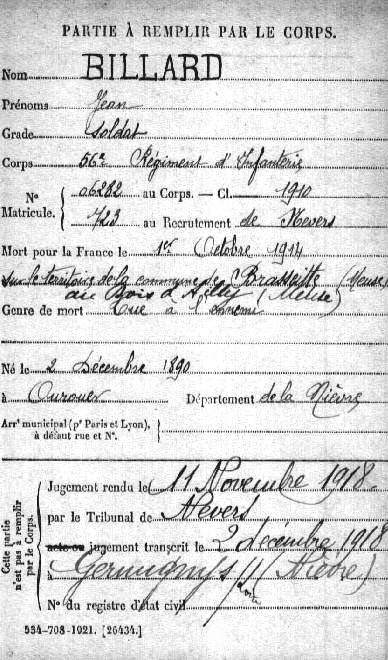 PARTIE À REMPLIR PAR LE CORPS.
Nom BILLARD
Prénoms Jean
Grade Soldat
Corps 56e Régiment d'Infanterie
N° Matricule. 06282 au Corps. — Cl. 1910
723 au Recrutement de Nevers
Mort pour la France le 1er Octobre 1914
sur le territoire de la commune de Brasseitte (Meuse)
au Bois d'Ailly (Meuse)
Genre de mort Tué à l'ennemi
Né le 2 Décembre 1890
à Ourouer Département de la Nièvre
Arrt municipal (pr Paris et Lyon), à défaut rue et N°.
Cette partie n'est pas à remplir par le Corps.
Jugement rendu le 11 Novembre 1918
par le Tribunal de Nevers
acte ou jugement transcrit le 2 décembre 1918
à Germigny s/ Loire (Nièvre)
N° du registre d'état civil
534-708-1921. [26434.]